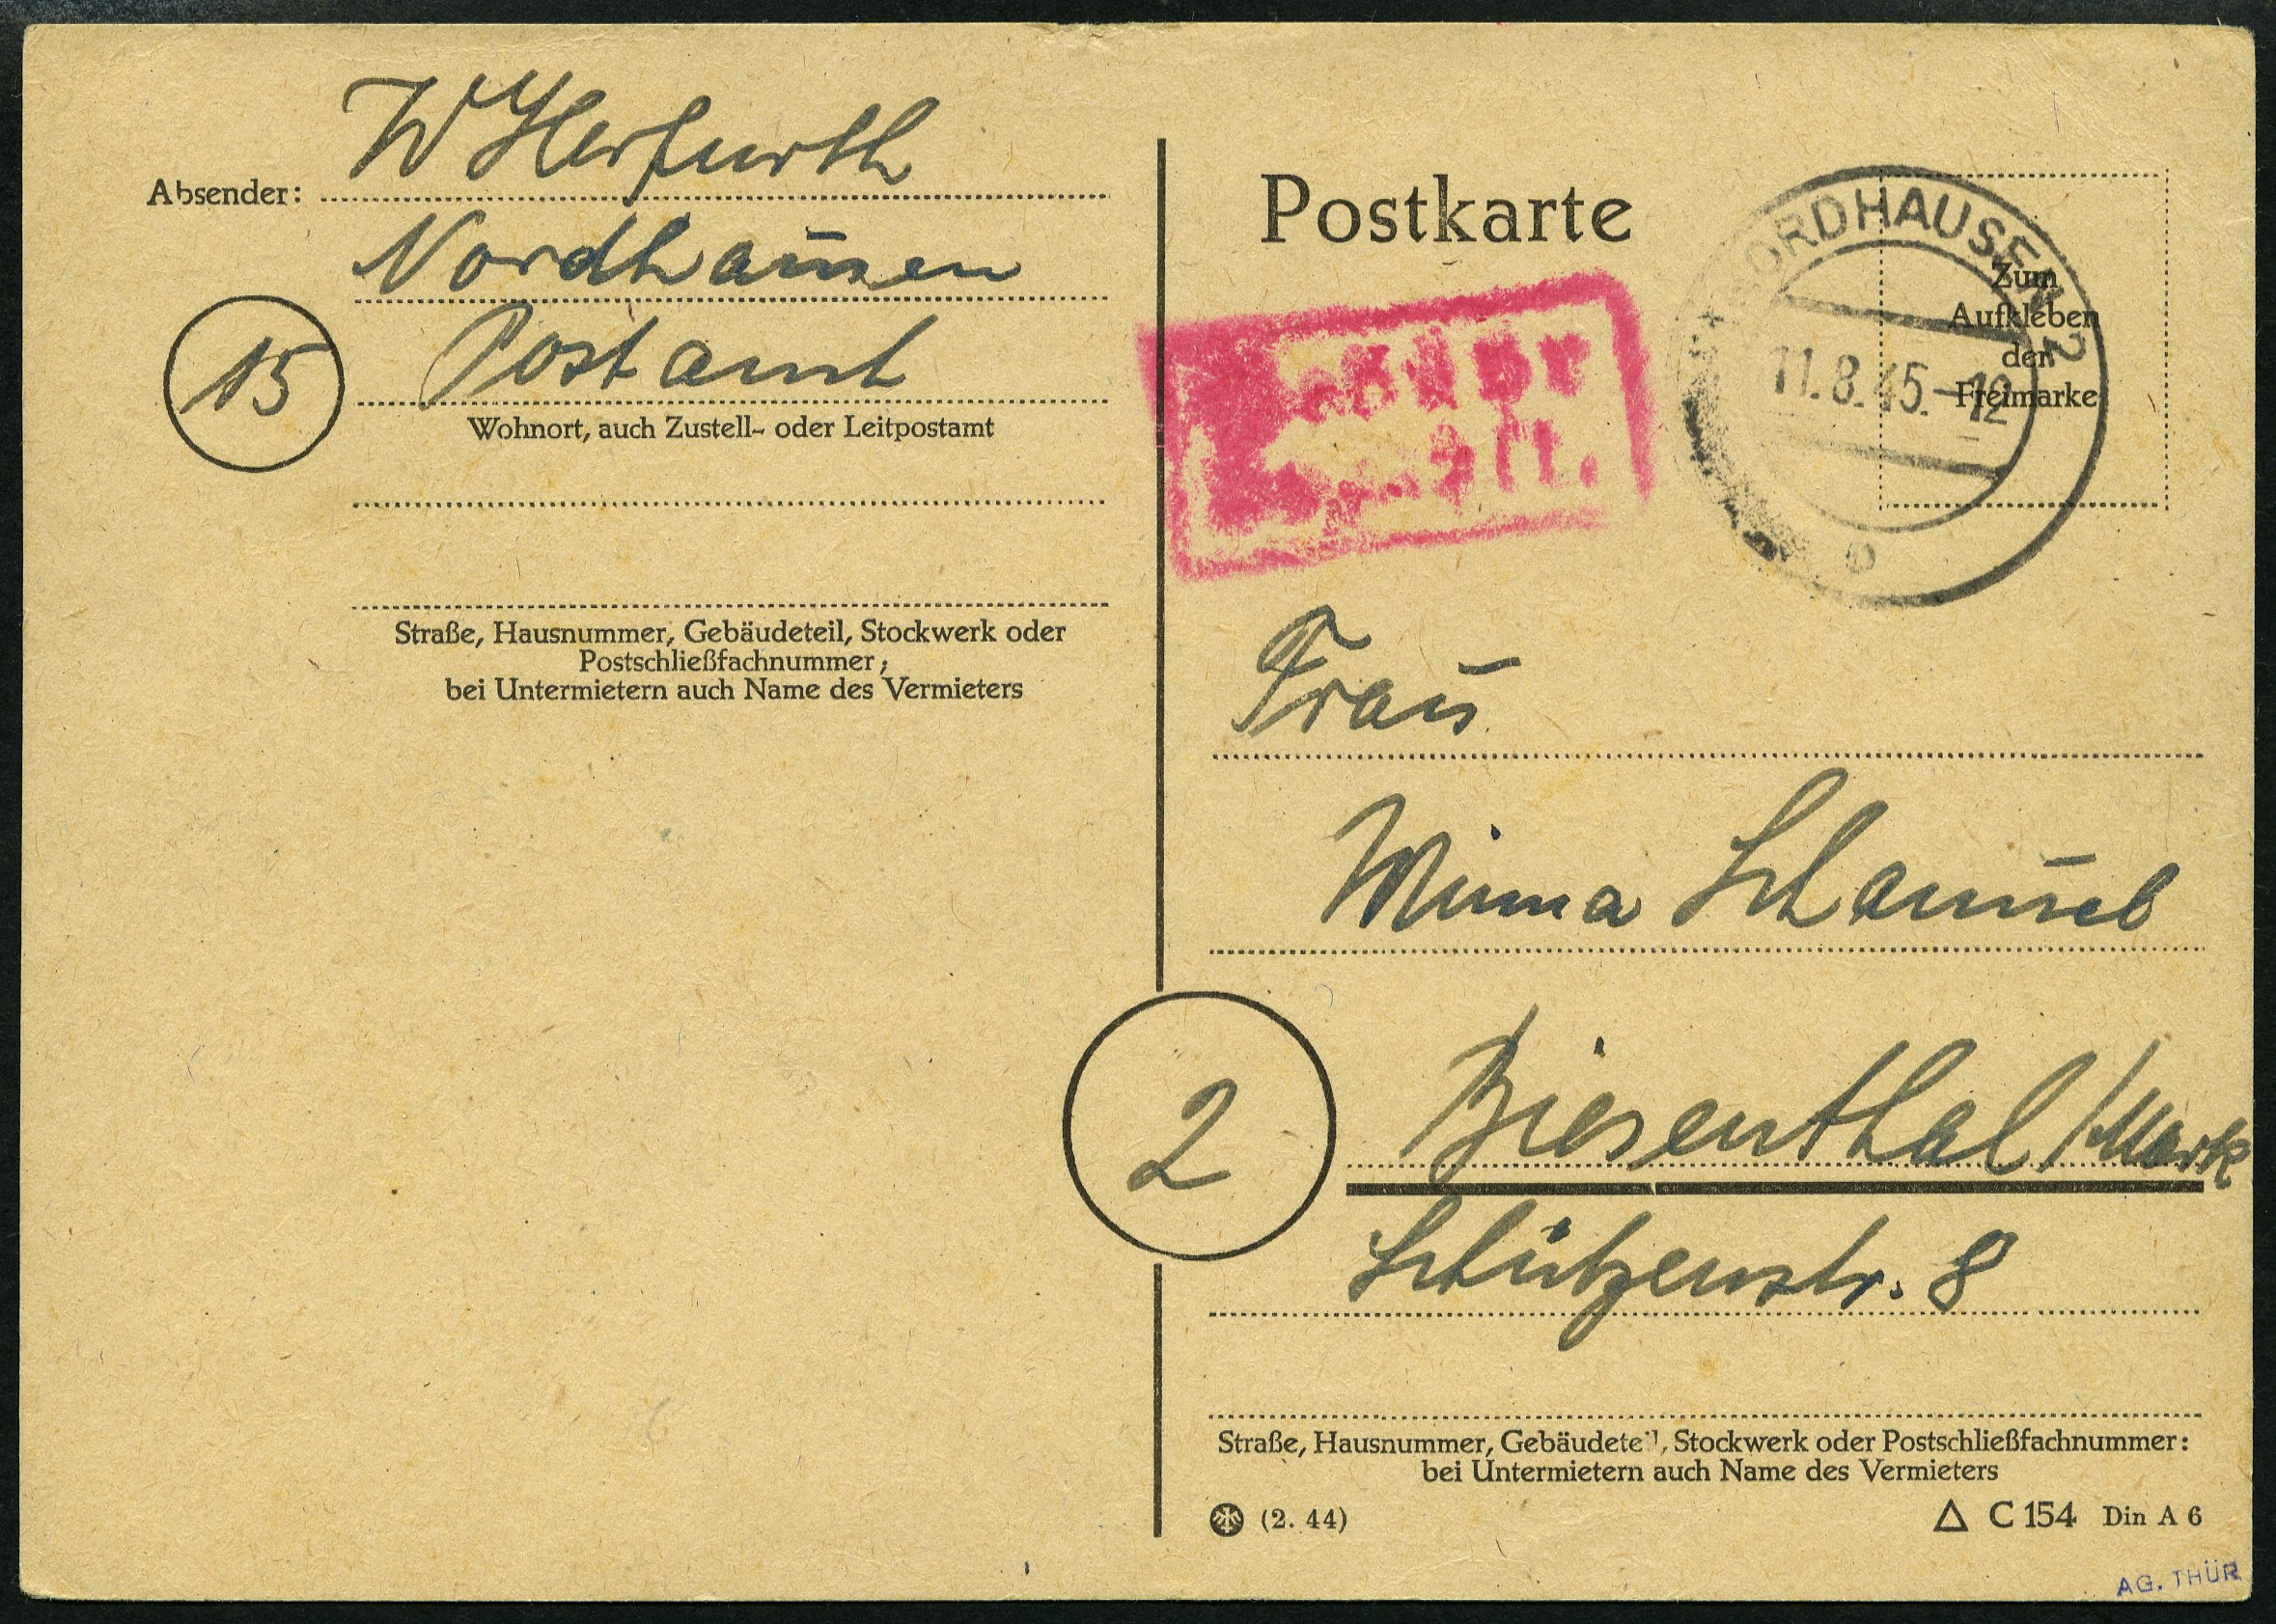 W Herfurth
Absender:
Nordhausen
15
Postamt
Wohnort, auch Zustell- oder Leitpostamt
Straße, Hausnummer, Gebäudeteil, Stockwerk oder
Postschließfachnummer;
bei Untermietern auch Name des Vermieters
Postkarte
NORDHAUSEN 2
11.8.45.-12
Zum
Aufkleben
der
Freimarke
Frau
Minna
2
Biesenthal/Mark
Schützenstr. 8
Straße, Hausnummer, Gebäudeteil, Stockwerk oder Postschließfachnummer:
bei Untermietern auch Name des Vermieters
(2. 44)
C 154 Din A 6
AG. THÜR